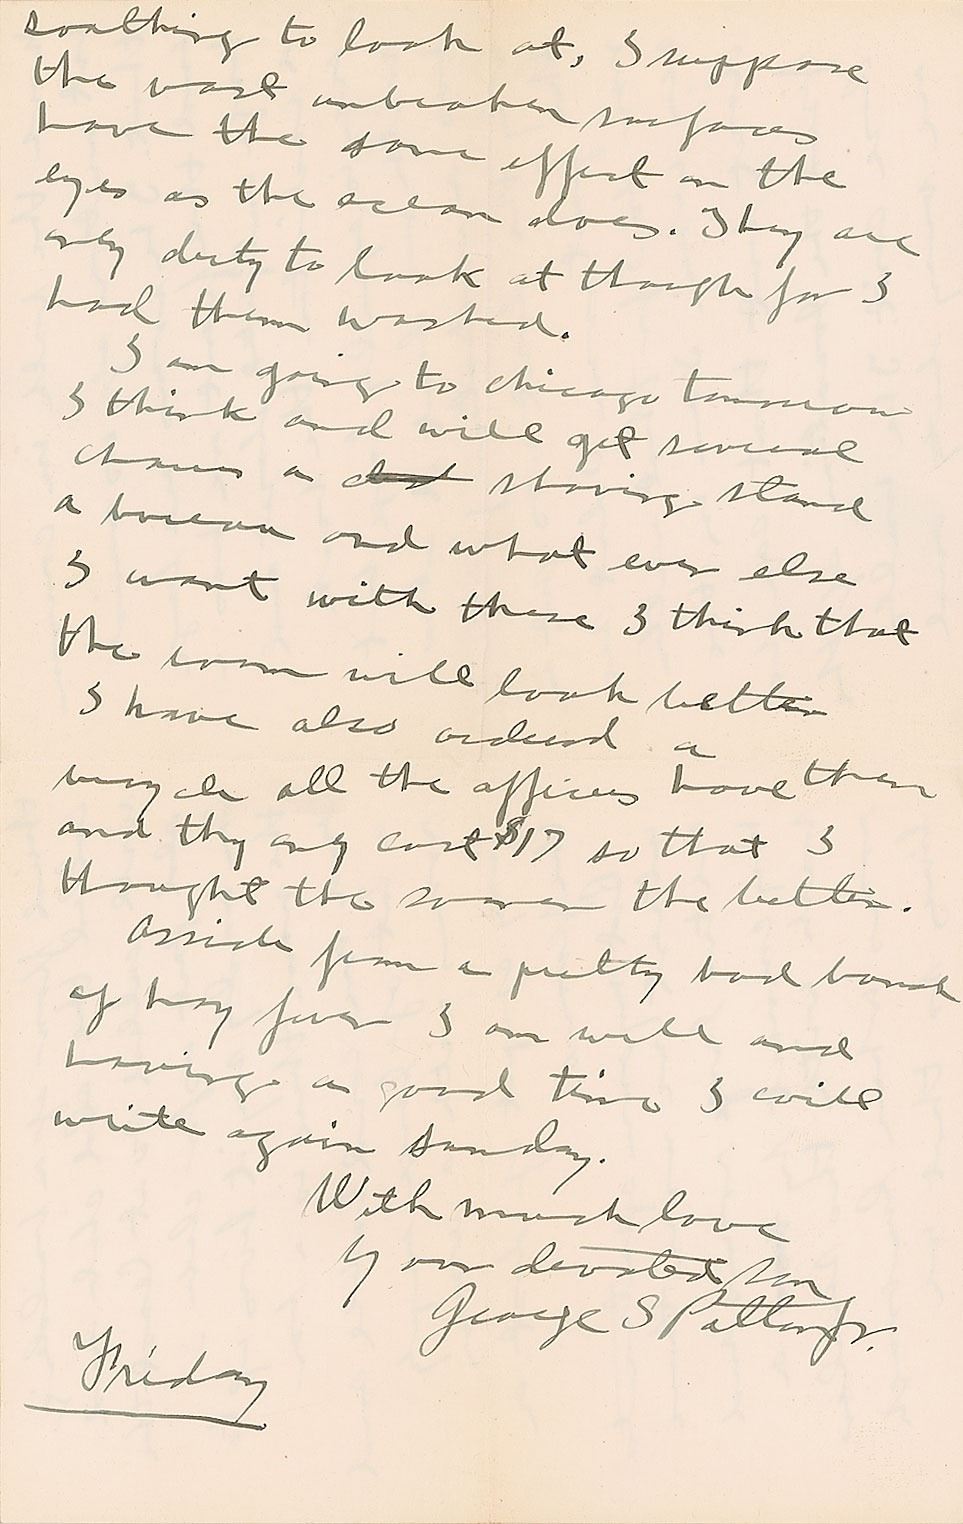 soathing to look at, I suppose
the vast unbroken surfaces
have the same effect on the
eyes as the ocean does. They are
only duty to look at though for I
had them washed.
I am going to chicago tomorrow
I think and will get several
chairs a shaving stand
a bureau and what ever else
I want with these I think that
the room will look better
I have also ordered a
all the officers have them
and thy only cost $17 so that I
thought the sooner the better.
Asside from a pretty bad bunch
of hay fever I am well and
having a good time I will
write again Sunday.
With much love
Your devoted son
George S Patton Jr.
Friday